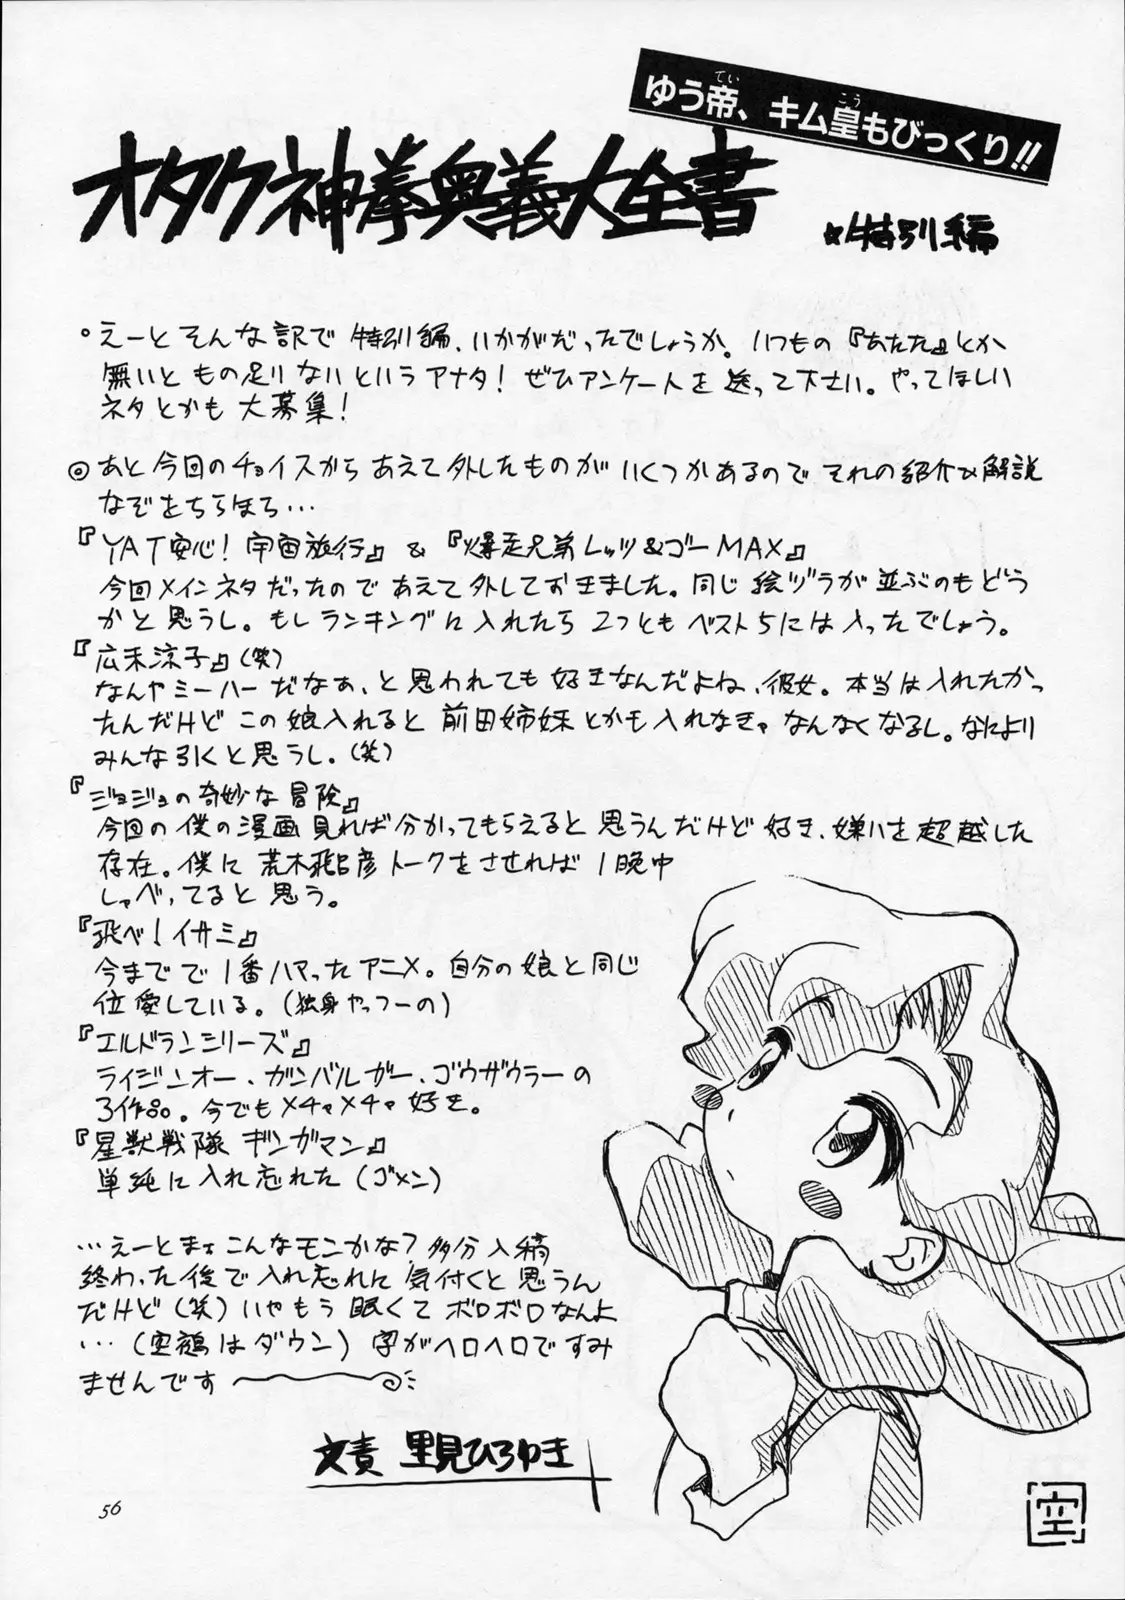 ゆう帝、キム皇もびっくり!!
てい
こう
オタク神拳奥義大全書
☆特別編
°えーとそんな訳で特別編、いかがだったでしょうか。いつもの『あたた』とか
無いともの足りないというアナタ!ぜひアンケートを送って下さい。やってほしい
ネタとかも大募集!
◎あと今回のチョイスからあえて外したものがいくつかあるのでそれの紹介&解説
なぞをちらほら…
『YAT安心!宇宙旅行』&『爆走兄弟レッツ&ゴーMAX』
今回メインネタだったのであえて外しておきました。同じ絵ヅラが並ぶのもどう
かと思うし。もしランキングに入れたら2つともベスト5には入ったでしょう。
『広末涼子』(笑)
なんやミーハーだなぁ、と思われても好きなんだよね、彼女。本当は入れたかっ
たんだけどこの娘入れると前田姉妹とかも入れなきゃなんなくなるし。なにより
みんな引くと思うし。(笑)
『ジョジョの奇妙な冒険』
今回の僕の漫画見れば分かってもらえると思うんだけど好き、嫌いを超越した
存在。僕に荒木飛呂彦トークをさせれば1晩中
しゃべってると思う。
『飛べ!イサミ』
今までで1番ハマったアニメ。自分の娘と同じ
位愛している。(独身やっつーの)
『エルドランシリーズ』
ライジンオー、ガンバルガー、ゴウザウラーの
3作品。今でもメチャメチャ好き。
『星獣戦隊ギンガマン』
単純に入れ忘れた(ゴメン)
…えーとまぁこんなモンかな?多分入稿
終わった後で入れ忘れに気付くと思うん
だけど(笑)いやもう眠くてボロボロなんよ
…(空鶴はダウン)字がヘロヘロですみ
ませんです
文責 里見ひろゆき
56
空